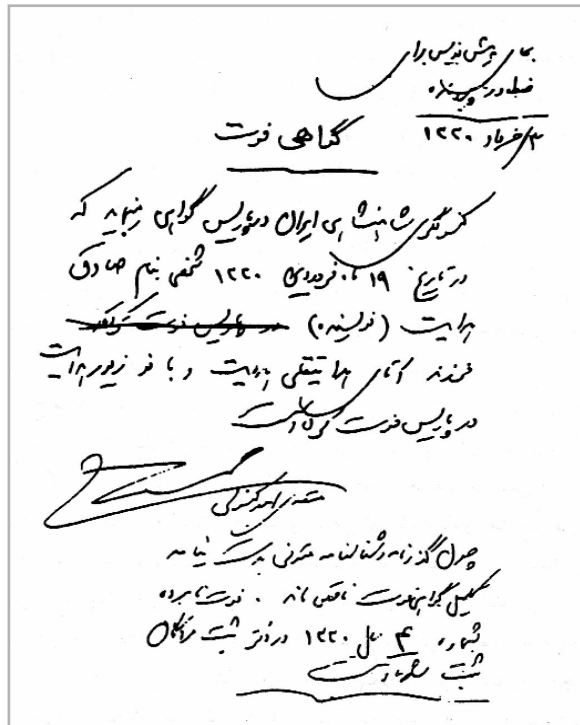 بجای پیش نویس برای
ضبط در پرونده
۳ خرداد ۱۳۳۰
گواهی فوت
کنسولگری شاهنشاهی ایران در پاریس گواهی مینماید که
در تاریخ ۱۹ فروردین ۱۳۳۰ شخصی بنام صادق
هدایت (نویسنده) در پاریس فوت
فرزند آقای هدایتقلی هدایت و بانو زیور هدایت
در پاریس فوت کرده است
متصدی امور کنسولی
چون گذرنامه و شناسنامه متوفی بدست نیامد
تکمیل گواهی فوت ناقص ماند . فوت نامبرده
شماره ۴ سال ۱۳۳۰ در دفتر ثبت مردگان
ثبت شده است